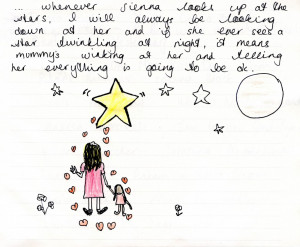 ... whenever Sienna looks up at the
stars, I will always be looking
down at her and if she ever sees a
star twinkling at night, it means
mummys winking at her and telling
her everything is going to be ok.